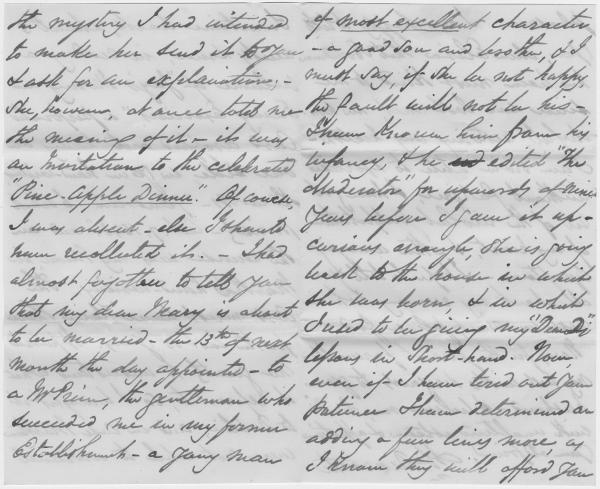 the mystery I had intended
to make her send it to you
& ask for an explanation; -
she, however, at once told me
the meaning of it - it was
an Invitation to the celebrated
"Pine-Apple Dinner." Of course
I was absent - else I should
have recollected it. - I had
almost forgotten to tell you
that my dear Mary is about
to be married - the 13th of next
month the day appointed - to
a Mr Prim, the gentleman who
succeeded me in my former
Establishment - a young man
of most excellent character
- a good son and brother, & I
must say, if she be not happy,
the fault will not be his -
I have known him from his
infancy, & he edited "The
Moderator" for upwards of
years before I gave it up -
curious enough, she is going
back to the house in which
she was born, & in which
I used to be giving my
lessons in Short-hand. Now
even if I have tired out your
patience I have determined on
adding a few lines more, as
I know they will afford you